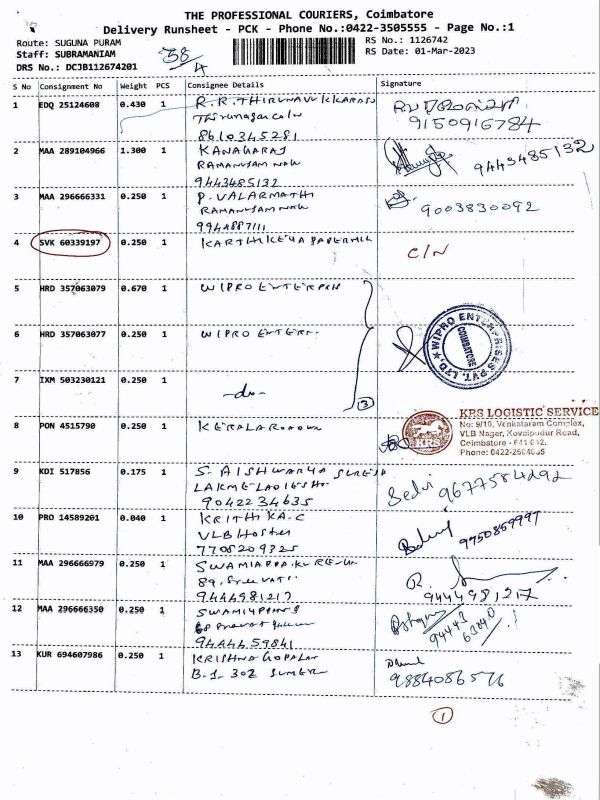 THE PROFESSIONAL COURIERS, Coimbatore
Delivery Runsheet - PCK - Phone No.:0422-3505555 - Page No.:1
Route: SUGUNA PURAM
RS No.: 1126742
Staff: SUBRAMANIAM
RS Date: 01-Mar-2023
DRS No.: DCJB112674201
38
S No Consignment No Weight PCS Consignee Details Signature
1 EDQ 25124608 0.430 1 R.R.THIRUNAVUKKARASU
Thirunagar
8610345281
9150916784
2 MAA 289104966 1.300 1 KANAGARAJ
RAMANUJAM
9443485132
9443485132
3 MAA 296666331 0.250 1 P. VALARMATHI
RAMANUJAM
9944887111
9003830092
4 SVK 60339197 0.250 1 KARTHIKEYA PAPERMILL
C/N
5 HRD 357063079 0.670 1 WIPRO
6 HRD 357063077 0.250 1 WIPRO
WIPRO ENTERPRISES PVT. LTD.
COIMBATORE
7 IXM 503230121 0.250 1 -do-
3
8 PON 4515790 0.250 1 KERALA
KRS
KRS LOGISTIC SERVICE
No: 9/10, Venkataram Complex,
VLB Nager, Kovaipudur Road,
Coimbatore - 641 042.
Phone: 0422-2604055
9 KDI 517856 0.175 1 S. AISHWARYA SURESH
LAKME
9042234635
9677584292
10 PRO 14589201 0.040 1 KRITHIKA.C
VLB Hostel
7708209325
9750859997
11 MAA 296666979 0.250 1 SWAMIAPPA
89,
9444981217
R.
9444981217
12 MAA 296666350 0.250 1
9444459841
94443
63840
13 KUR 694607986 0.250 1 KRISHNA GOPALAN
B-1- 302 SUMER
9884086576
1